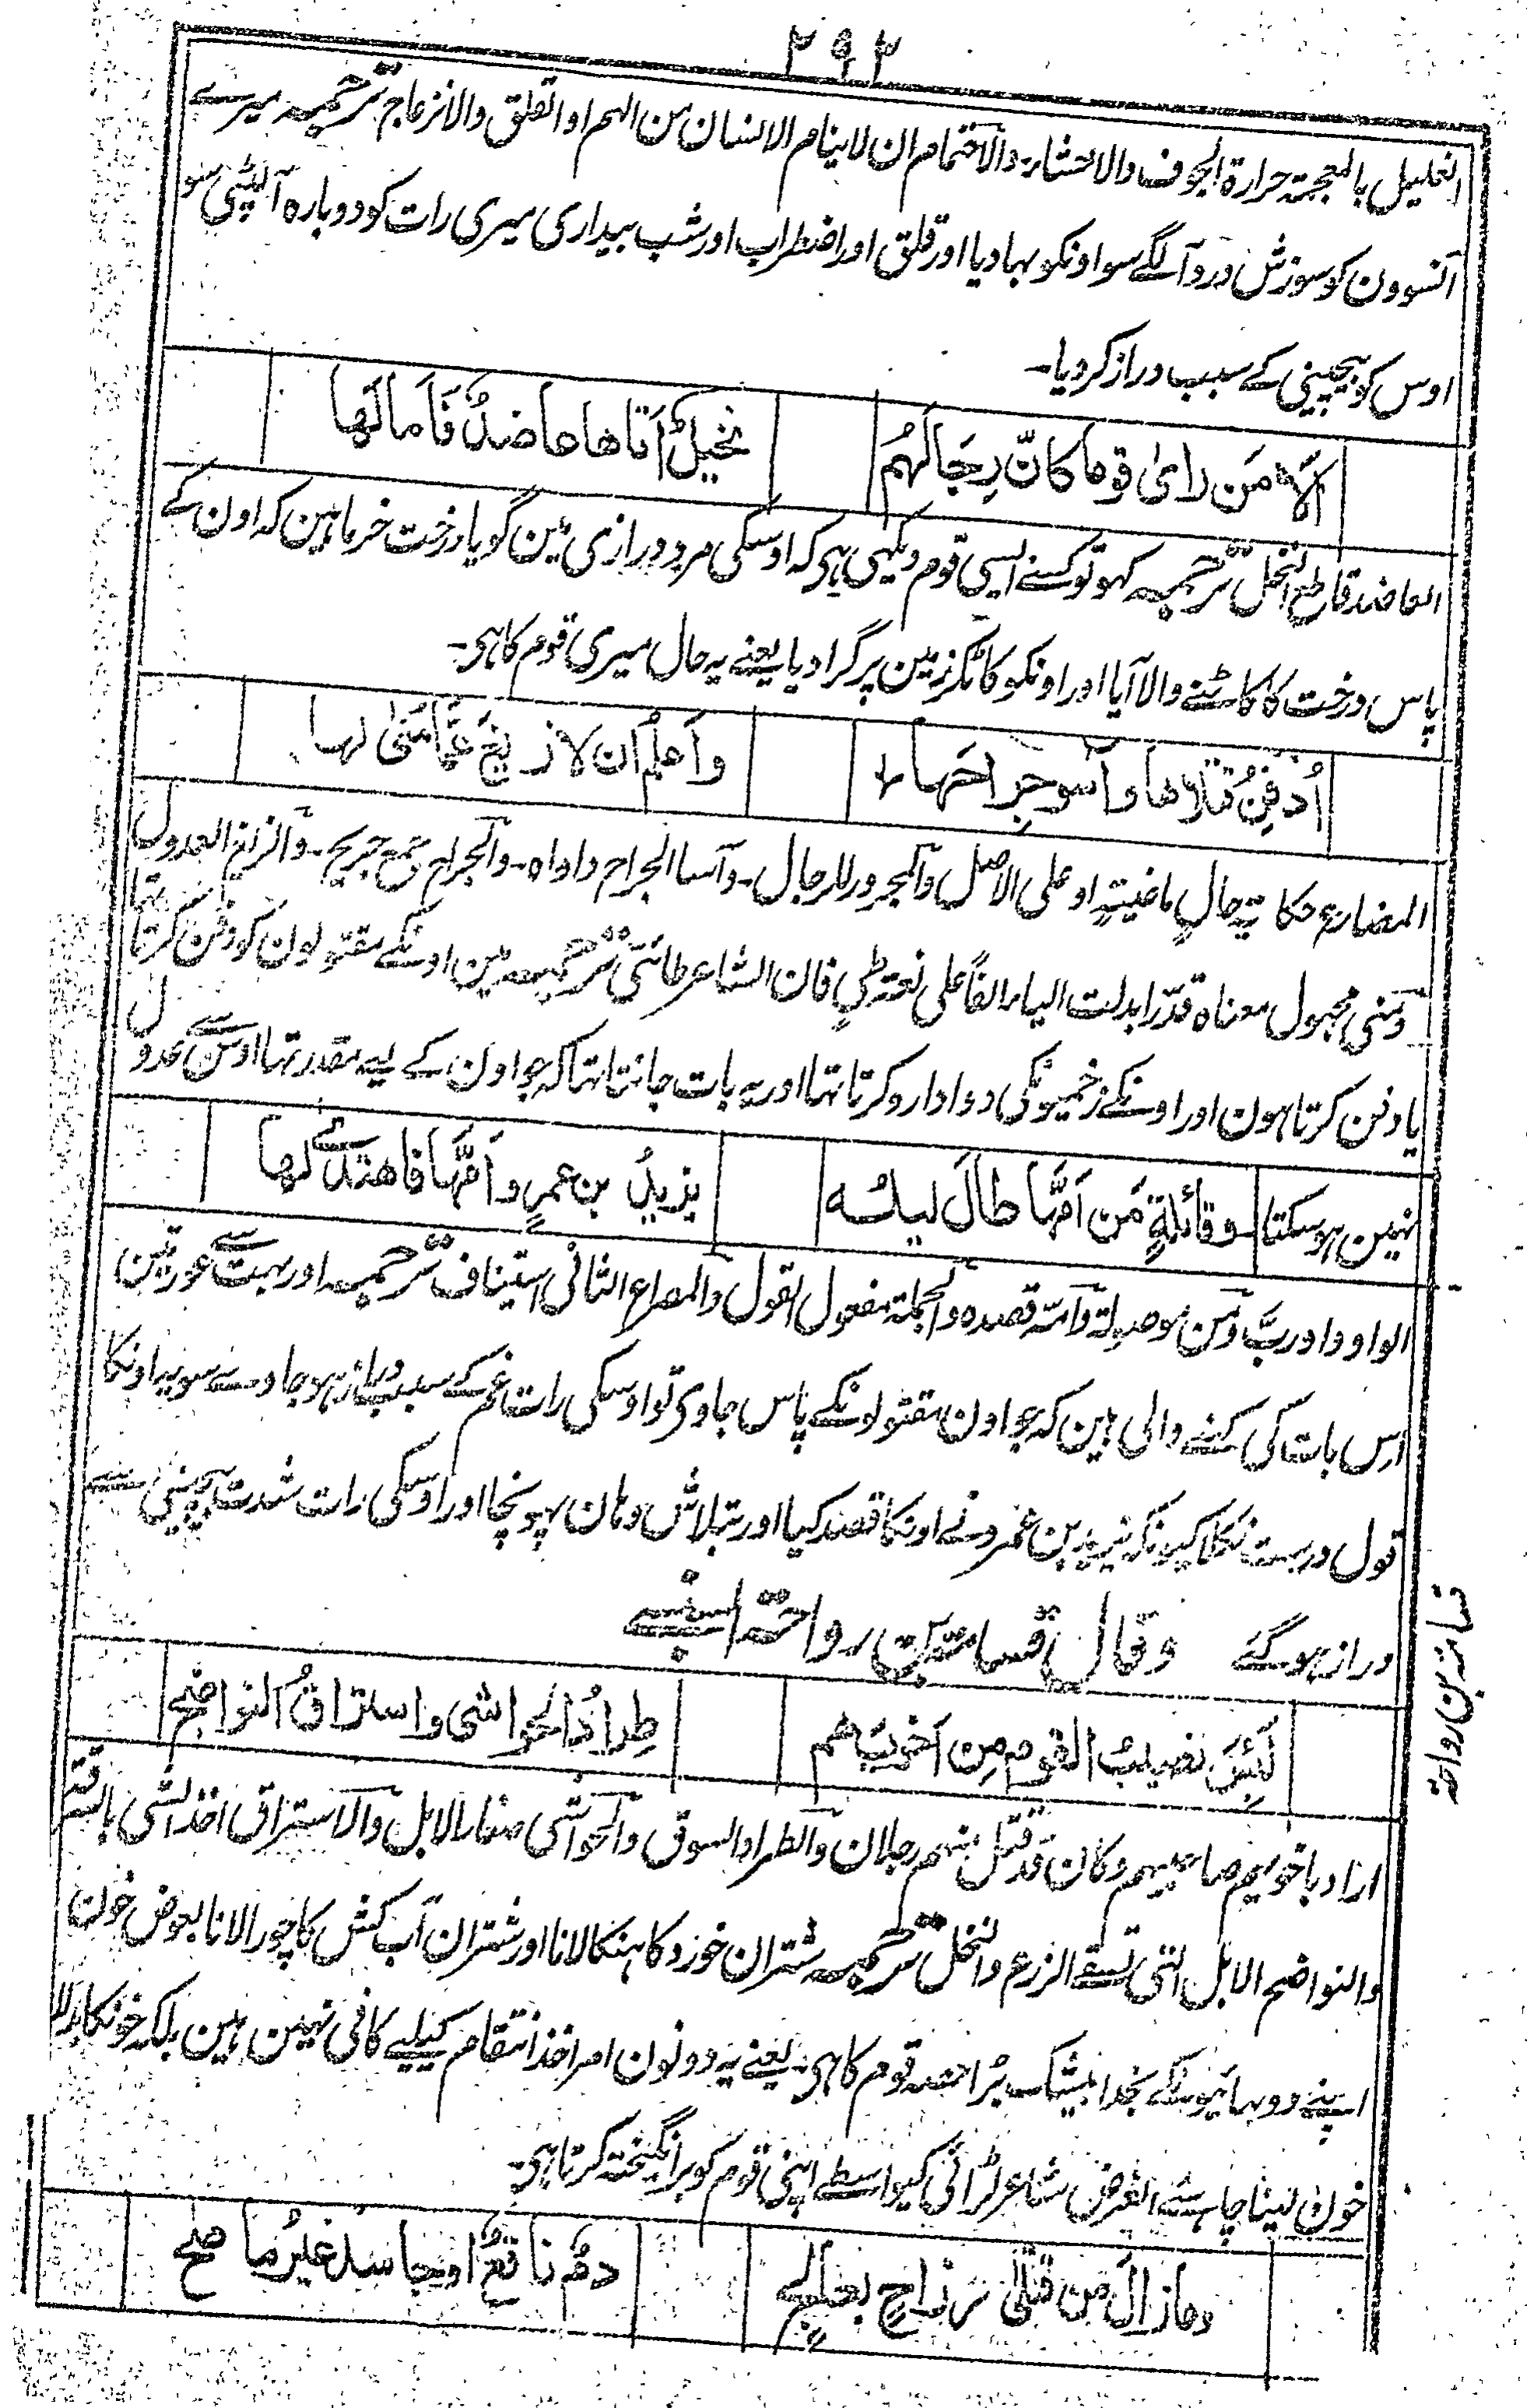 ۲۹۲
الغلیل بالمعجمۃ حرارۃ الجوف والاحشاء والاغتمام ان لاینام الانسان من الہم او القلق والانزعاج ترجمہ میرے
آنسوون کو سوزش درد آ لگے سو اونکو بہا دیا اور قلق اور اضطراب اور شب بیداری میری رات کو دوبارہ آ لپٹی سو
اوس کو بیچینی کے سبب دراز کر دیا۔
اَلَا مَن رایٰ قوما کانّ رِجَالَہُم نخیلٌ اَتاھا عاضدٌ فَاَمالَھا
العاضد قاطع النخل ترجمہ کہو تو کسنے ایسی قوم دیکھی ہی کہ اوسکی مرد درازی مین گویا درخت خرما ہین کہ اون کے
پاس درخت کا کاٹنے والا آیا اور اونکو کاٹکر زمین پر گرا دیا یعنے یہ حال میری قوم کا ہی۔
اُدفِنُ قتلاھا وآسو جِراحَہا واَعلمُ اَن لا زیغَ عمَّا مُنیٰ لہا
المضارع حکایۃ حالٍ ماضیۃٍ او علی الاصل والمجرور للرجال۔ وآسا الجراح داواہ۔ والجراح جمع جریح۔ والزیغ العدول
ومنی مجہول معناہ قدّر ابدلت الیاء الفاً علی لغۃ طیٍ فان الشاعر طائی ترجمہ مین اونکے مقتولون کو دفن کرتا تھا
یا دفن کرتا ہون اور اونکے زخمیونکی دوا دارو کرتا تھا اور یہ بات جانتا تھا کہ جو اون کے لیے مقدر تھا اوس سے عدول
نہین ہو سکتا وقائلۃٍ مَن اَمَّہا طالَ لیلُہ یزیدُ بن عمرٍو اَمَّہا فاھتدیٰ لھا
الواو واو ربَّ ومَن موصولۃ وامّہ قصدہ والجملۃ مفعول القول والمصراع الثانی استیناف ترجمہ اور بہت سے عورتین
اِس بات کی کہنے والی ہین کہ جو اون مقتولونکے پاس جاوی تو اوسکی رات غم کے سبب دراز ہو جاوے سو یہ اونکا
قول درست نکلا کیونکہ یزید بن عمرو نے اونکا قصد کیا اور بتلاش وہان پہونچا اور اوسکی رات شدت بیچینی سے
دراز ہو گئے وقال قسامۃ بن رواحۃ السنبسی
قسامۃ بن رواحۃ
لَبِئسَ نصیبُ القومِ مِن اَخَوَیھم طِرادُ الحواشی واستراقُ النواضح
اراد باخویہم صاحبیہم وکان قد قتل منہم رجلان والطراد السوق والحواشی صغار الابل والاستراق اخذ الشی بالسرقۃ
والنواضح الابل التی تسقے الزرع والنخل ترجمہ شتران خورد کا ہنکا لانا اور شتران آب کش کا چورا لانا بعوض خون
اپنے دو بھائیونکے بخدا بیشک بُرا حصہ قوم کا ہی۔ یعنے یہ دونون امر اخذ انتقام کیلیے کافی نہین ہین بلکہ خونکا بدلا
خون لینا چاہئے الغرض شاعر لڑائی کیواسطے اپنی قوم کو برانگیختہ کرتا ہی۔
ومازالَ مِن قتلیٰ رزاحٍ بعالجٍ دمٌ ناقعٌ اوجاسدٌ غیرُ ماصح